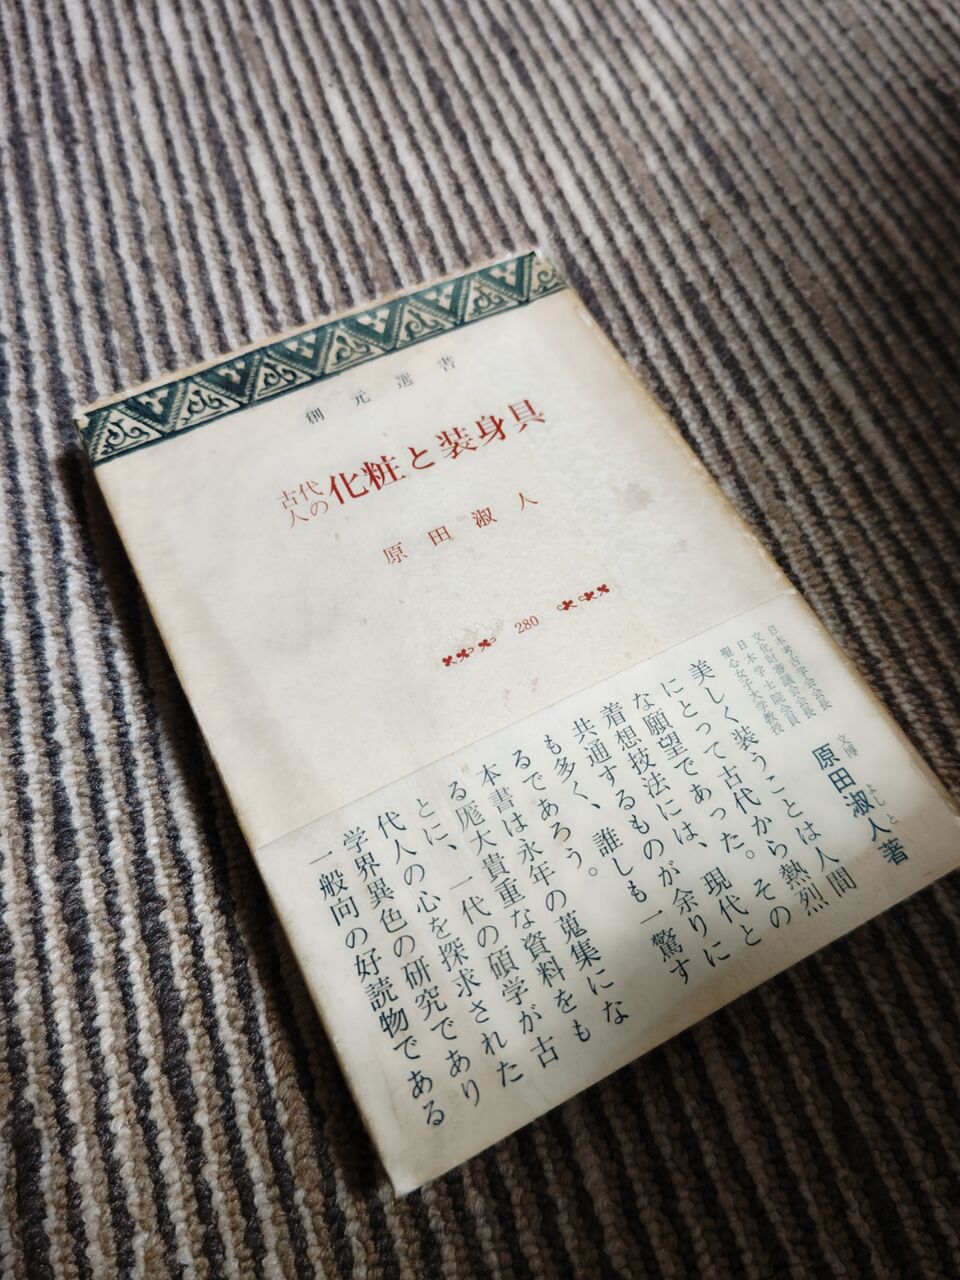 創元選書
古代人の化粧と装身具
原田淑人
280
日本考古学会会長
文化財審議会会長
日本学士院会員
聖心女子大学教授
文博 原田淑人著
よしと
美しく装うことは人間
にとって古代から熱烈
な願望であった。現代と
着想技法には、その
共通するものが余りに
も多く、誰しも一驚す
るであろう。
本書は永年の蒐集にな
る厖大貴重な資料をも
とに、一代の碩学が古
代人の心を探求された
学界異色の研究であり
一般向の好読物である